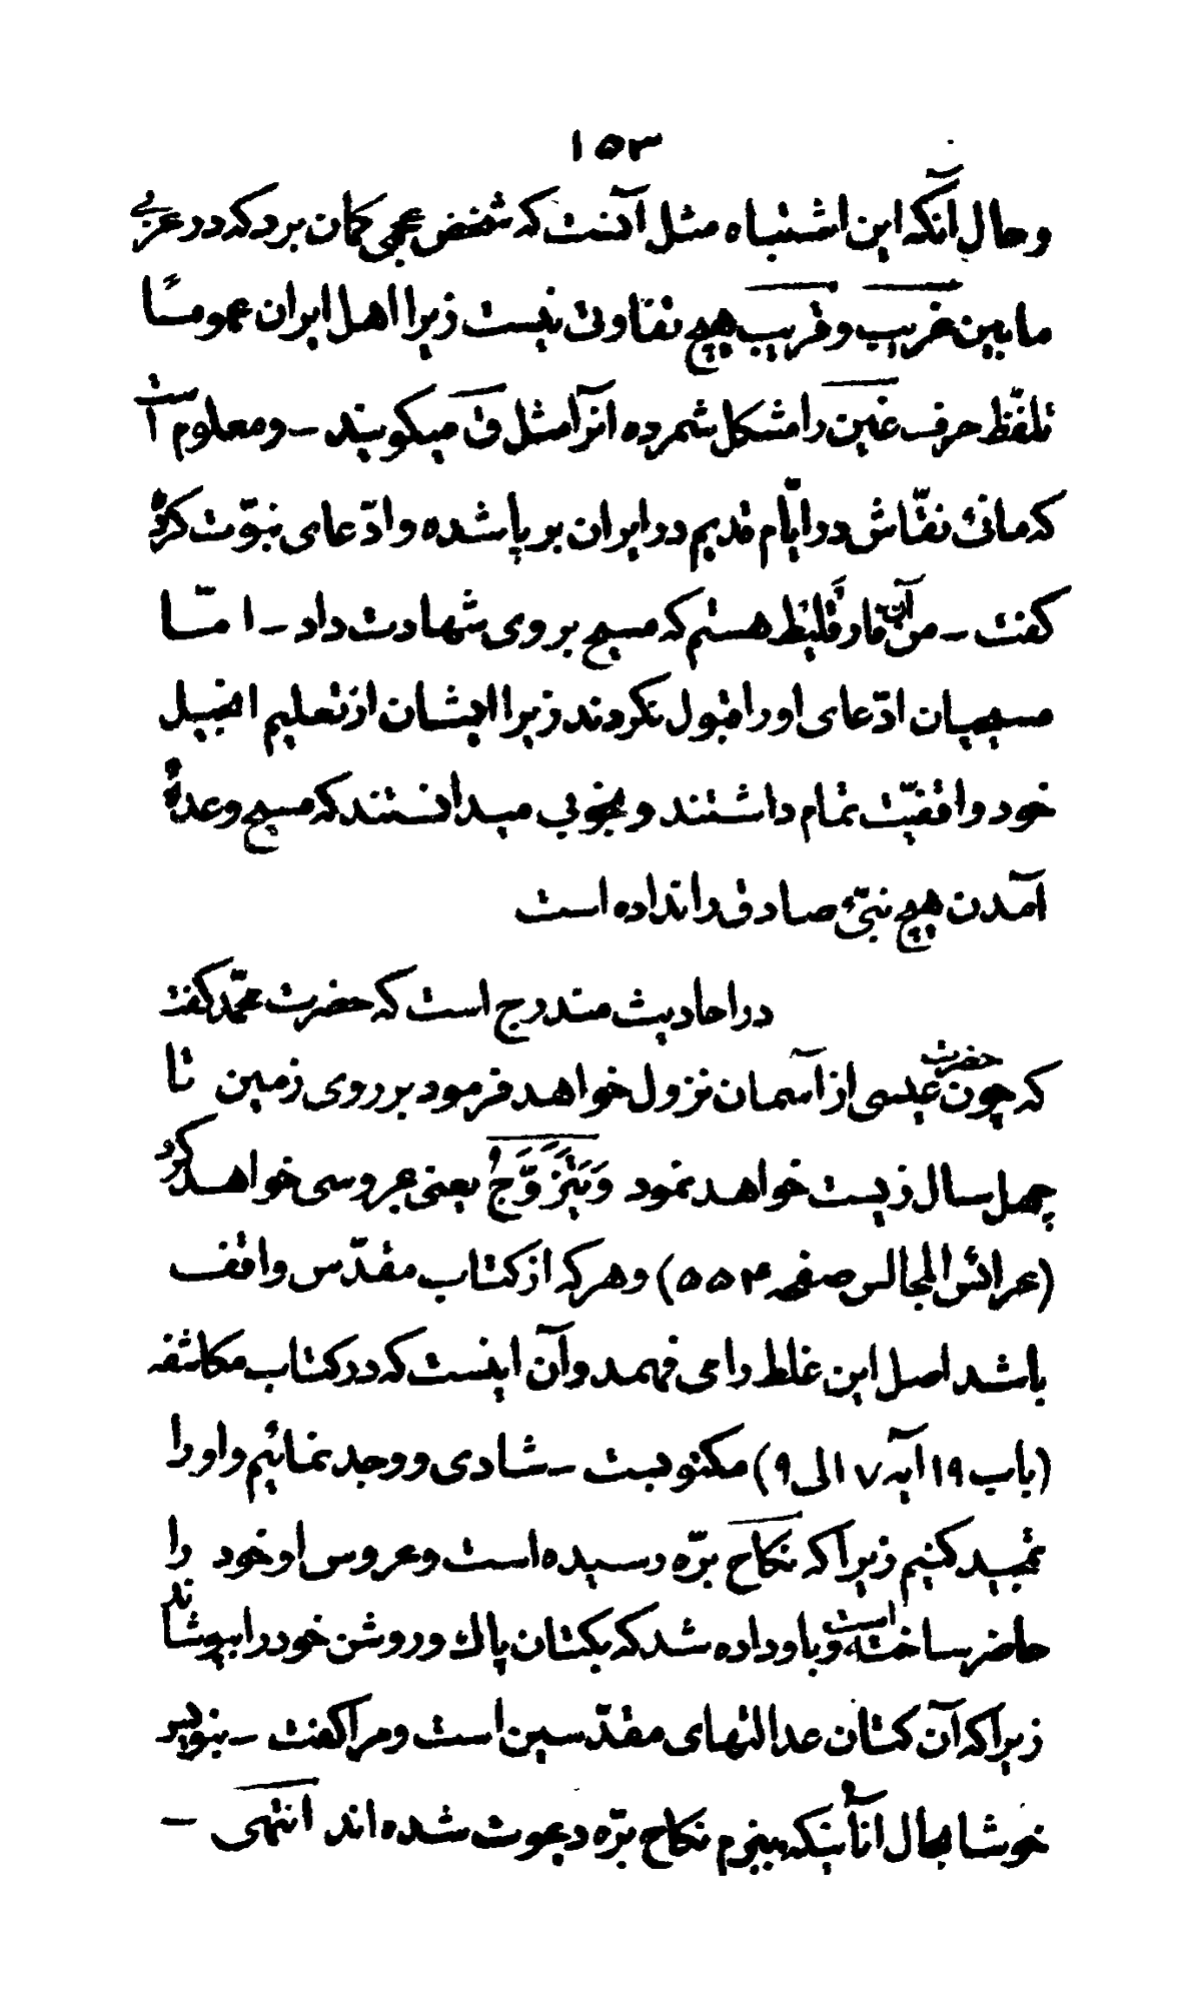 ۱۵۳
وحال آنکه این اشتباه مثل آنست که شخص عجمی گمان برد که در عربی
مابین غریب و قریب هیچ تفاوتی نیست زیرا اهل ایران عموماً
تلفّظ حرف غین را مشکل شمرده آنرا مثل ق میگویند ــ ومعلوم است
که مانیٔ نقّاش در ایّام قدیم در ایران بر پا شده و ادّعای نبوّت کرده
گفت ــ من آن فارقلیط هستم که مسیح بر وی شهادت داد ــ امّا
مسیحیان ادّعای او را قبول نکردند زیرا ایشان از تعلیم انجیل
خود واقفیّت تمام داشتند و بخوبی میدانستند که مسیح وعدهٔ
آمدن هیچ نبیٔ صادق را نداده است
در احادیث مندرج است که حضرت محمّد گفت
که چون حضرت عیسی از آسمان نزول خواهد فرمود بر روی زمین تا
چهل سال زیست خواهد نمود وَیَتَزَوَّجُ یعنی عروسی خواهد کرد
(عرائس المجالس صفحه ۵۵۴) وهر که از کتاب مقدّس واقف
باشد اصل این غلط را می فهمد و آن اینست که در کتاب مکاشفه
(باب ۱۹ آیه ۷ الی ۹) مکتوبست ــ شادی و وجد نمائیم و او را
تمجید کنیم زیرا که نکاح برّه رسیده است و عروس او خود را
حاضر ساخته است و باو داده شد که بکتان پاك و روشن خود را بپوشاند
زیرا که آن کتان عدالتهای مقدّسین است و مرا گفت ــ بنویس
خوشا بحال آنانیکه ببزم نکاح برّه دعوت شده اند انتهی ــ